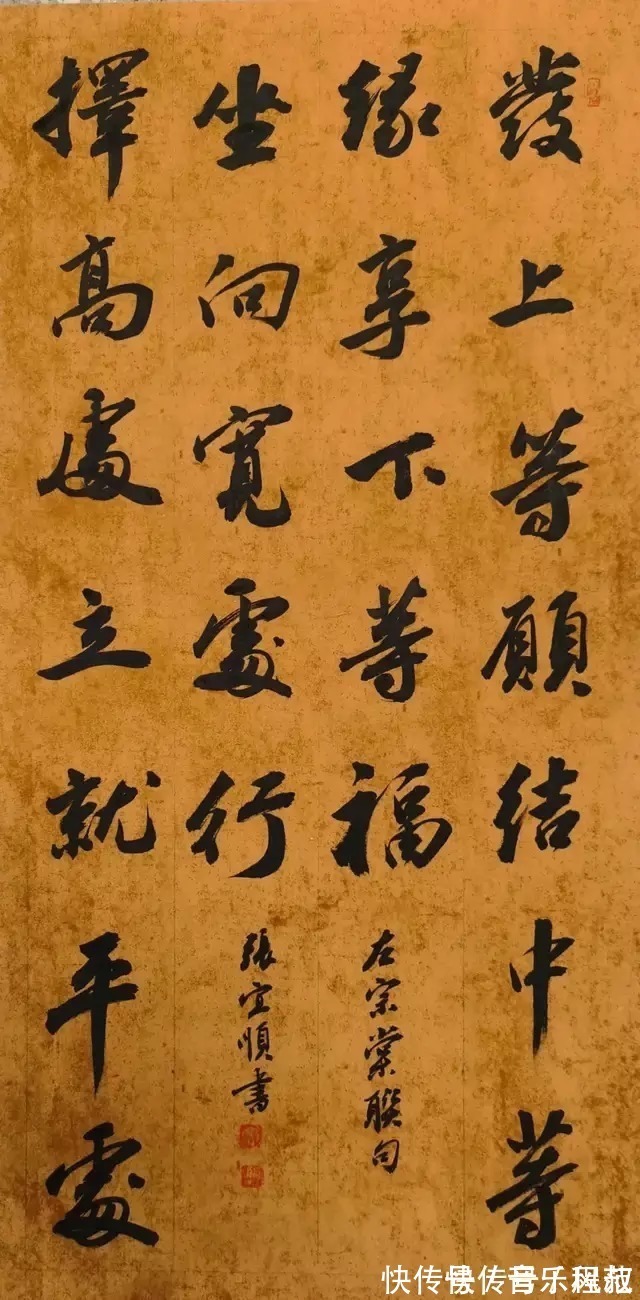 發上等願結中等
緣享下等福
左宗棠聯句
擇高處立就平處
坐向寬處行
張宜順書
快传